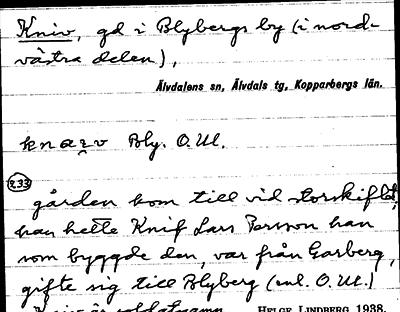 Kniv, gd i Blybergs by (i nord-
västra delen),
Älvdalens sn, Älvdals tg, Kopparbergs län.
knaiv Bly. O. Ul.
233
gården kom till vid storskiftet,
han hette Knif Lars Persson han
som byggde den, var från Garberg,
gifte sig till Blyberg (enl. O. Ul.)
Kniv är soldatnamn
HELGE LINDBERG 1938.